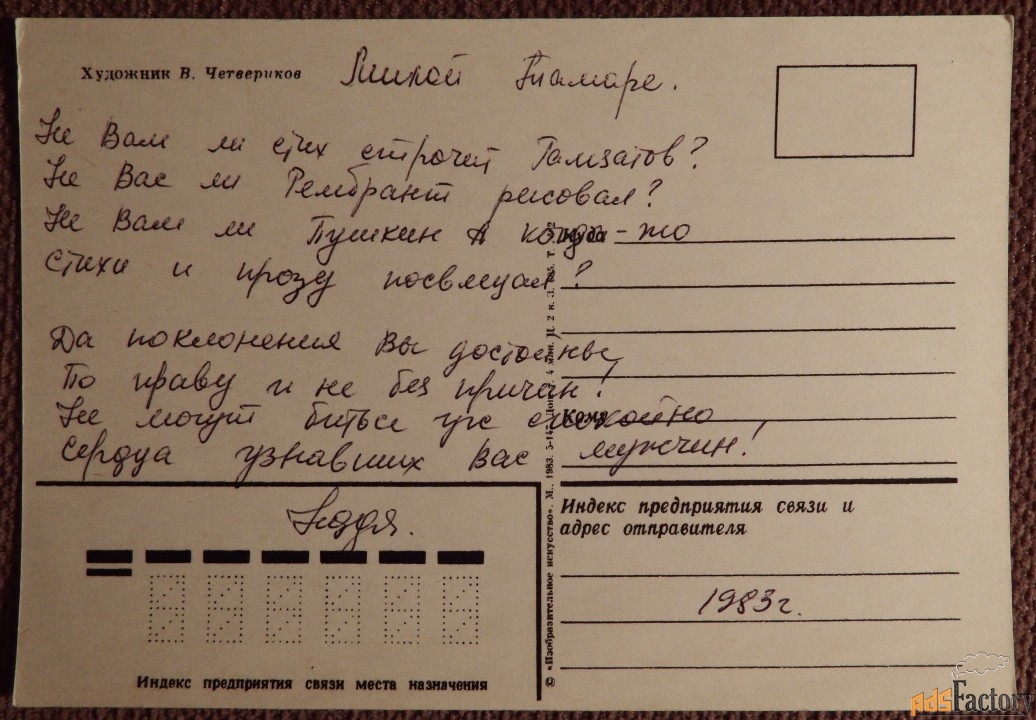 Художник В. Четвериков
Милой Тамаре.
Не Вам ли стих строчит Гамзатов?
Не Вас ли Рембрант рисовал?
Не Вам ли Пушкин А когда-то
стихи и прозу посвящал?
Да поклонения Вы достойны,
По праву и не без причин!
Не могут биться уж спокойно
Сердца узнавших Вас мужчин!
Надя.
Куда
Кому
Индекс предприятия связи и
адрес отправителя
1983г.
Индекс предприятия связи места назначения
© «Изобразительное искусство». М., 1983.
AdsFactory